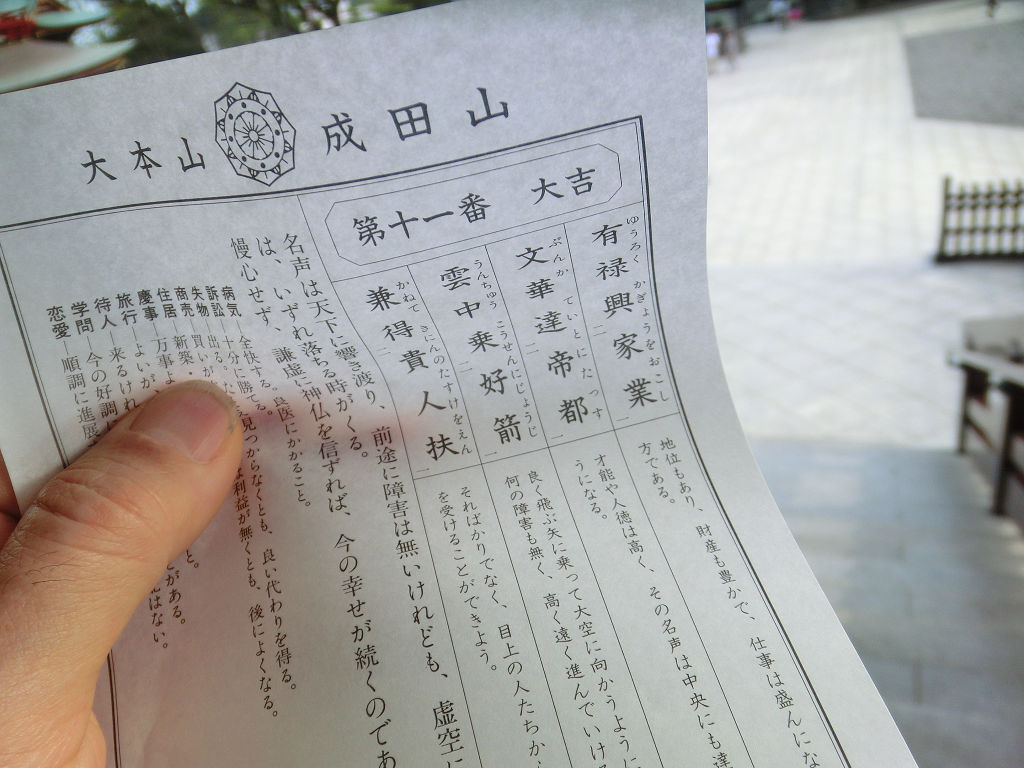 大本山 成田山
第十一番 大吉
有禄興家業
ゆうろく かぎょうをおこし
地位もあり、財産も豊かで、仕事は盛んにな
方である。
文華達帝都
ぶんか ていとにたっす
才能や人徳は高く、その名声は中央にも達
うになる。
雲中乗好箭
うんちゅう こうせんにじょうじ
良く飛ぶ矢に乗って大空に向かうように
何の障害も無く、高く遠く進んでいけ
兼得貴人扶
かねて きにんのたすけをえん
そればかりでなく、目上の人たちか
を受けることができよう。
名声は天下に響き渡り、前途に障害は無いけれども、虚空に
は、いずれ落ちる時がくる。
慢心せず、謙虚に神仏を信ずれば、今の幸せが続くのであ
病気―全快する。良医にかかること。
訴訟―十分に勝てる。
失物―出る
見つからなくとも、良い代わりを得る。
商売―買いが
利益が無くとも、後によくなる。
住居―新築・
慶事―万事よ
旅行―よいが
がある。
待人―来るけれ
はない。
学問―今の好調に
恋愛―順調に進展